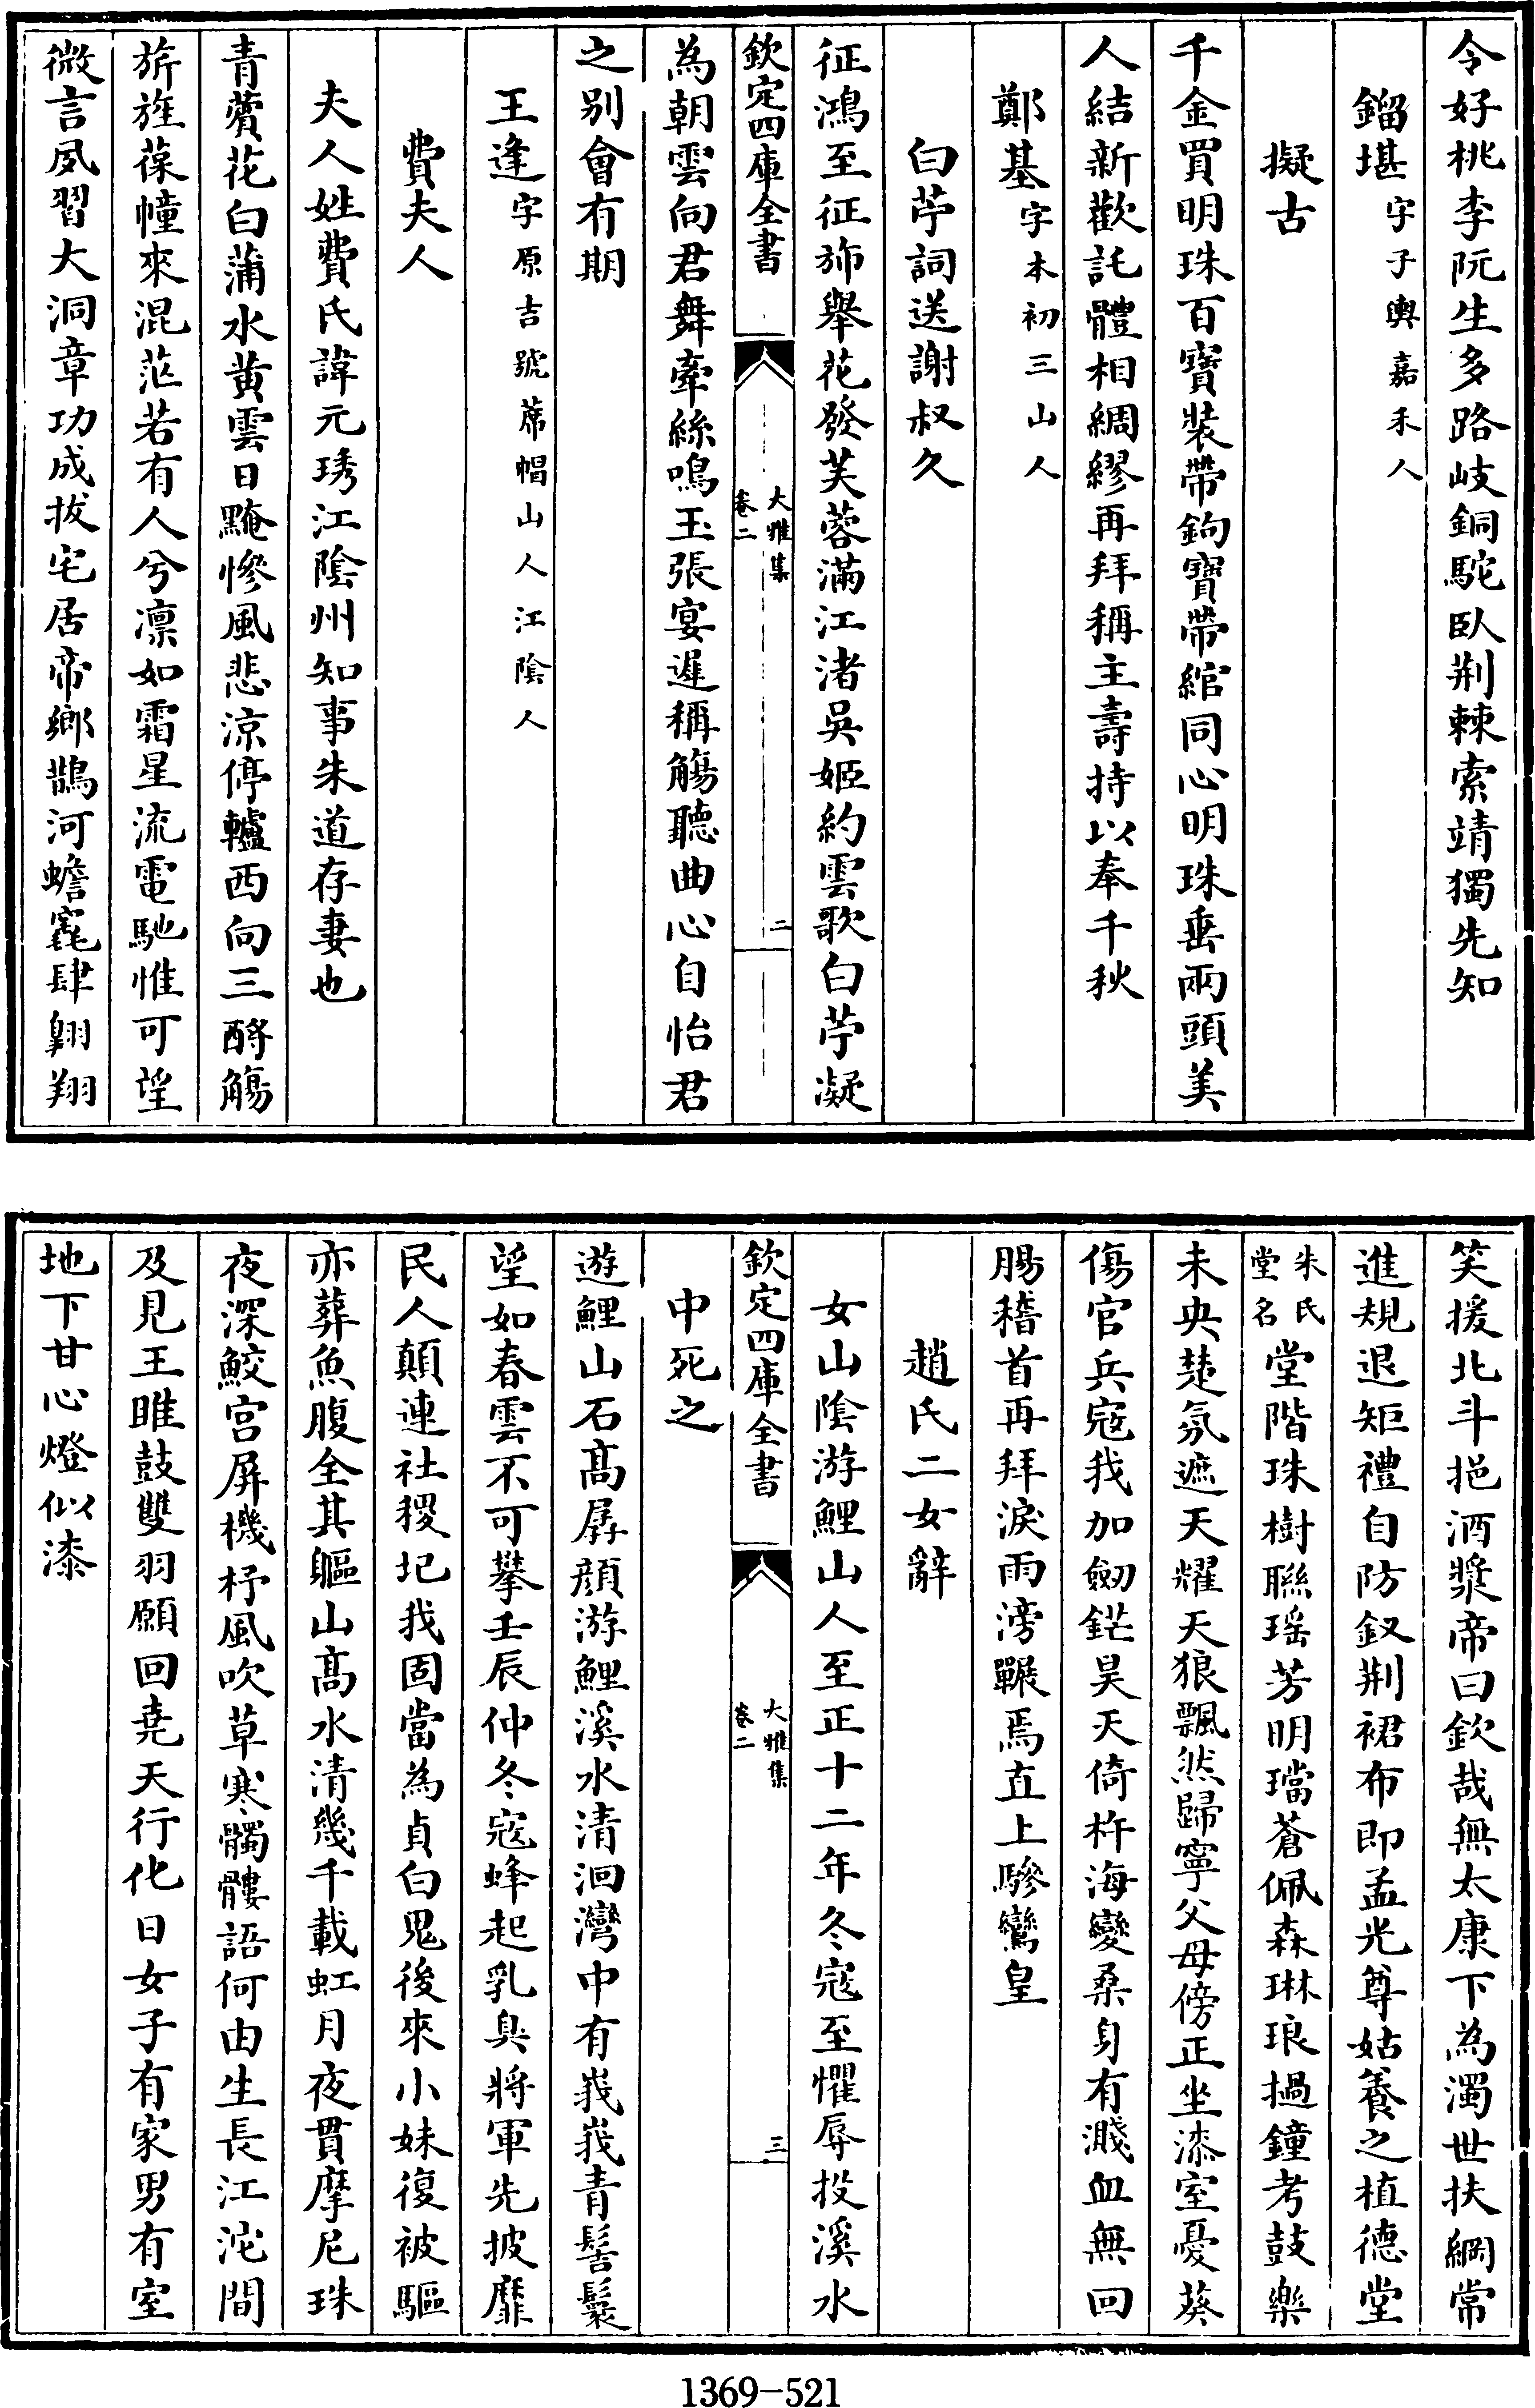 令好桃李阮生多路岐銅駝臥荆棘索靖獨先知
鎦堪字子輿嘉禾人
擬古
千金買明珠百寶裝帶鉤寶帶綰同心明珠垂兩頭美
人結新歡託體相綢繆再拜稱主壽持以奉千秋
鄭基字本初三山人
白苧詞送謝叔久
征鴻至征斾舉花發芙蓉滿江渚吳姬約雲歌白苧凝
欽定四庫全書
大雅集
卷二
二
為朝雲向君舞牽絲鳴玉張宴遲稱觴聽曲心自怡君
之别會有期
王逢字原吉號蓆帽山人江陰人
費夫人
夫人姓費氏諱元琇江陰州知事朱道存妻也
青薲花白蒲水黄雲日黤慘風悲涼停轤西向三酹觴
旂旌葆幢來混茫若有人兮凛如霜星流電馳惟可望
微言夙習大洞章功成拔宅居帝鄉鵲河蟾窟肆翱翔
笑援北斗挹酒漿帝曰欽哉無太康下為濁世扶綱常
進規退矩禮自防釵荆裙布即孟光尊姑養之植德堂
朱氏堂名堂階珠樹聯瑶芳明璫蒼佩森琳琅撾鐘考鼓樂
未央楚氛遮天耀天狼飄然歸寧父母傍正坐漆室憂葵
傷官兵寇我加劒鋩昊天倚杵海變桑身有濺血無回
腸稽首再拜淚雨滂驪焉直上驂鸞皇
趙氏二女辭
女山陰游鯉山人至正十二年冬寇至懼辱投溪水
欽定四庫全書
大雅集
卷二
三
中死之
遊鯉山石髙孱顔游鯉溪水清洄灣中有峩峩青髻鬟
望如春雲不可攀壬辰仲冬寇蜂起乳臭將軍先披靡
民人顛連社稷圮我固當為貞白鬼後來小妹復被驅
亦葬魚腹全其軀山髙水清幾千載虹月夜貫摩尼珠
夜深鮫宫屏機杼風吹草寒髑髏語何由生長江沱間
及見王雎鼓雙羽願回堯天行化日女子有家男有室
地下甘心燈似漆
1369-521